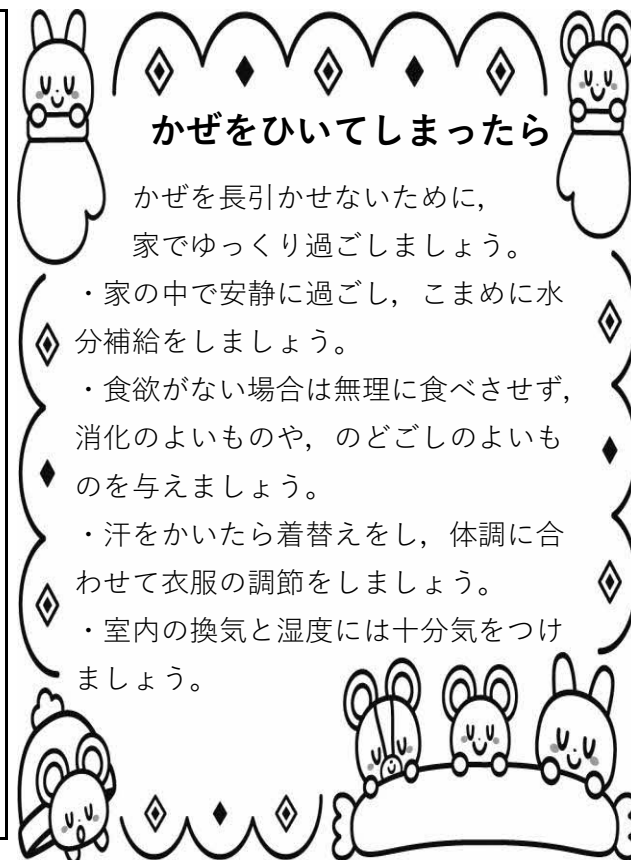 かぜをひいてしまったら
かぜを長引かせないために，
家でゆっくり過ごしましょう。
・家の中で安静に過ごし，こまめに水
分補給をしましょう。
・食欲がない場合は無理に食べさせず，
消化のよいものや，のどごしのよいも
のを与えましょう。
・汗をかいたら着替えをし，体調に合
わせて衣服の調節をしましょう。
・室内の換気と湿度には十分気をつけ
ましょう。